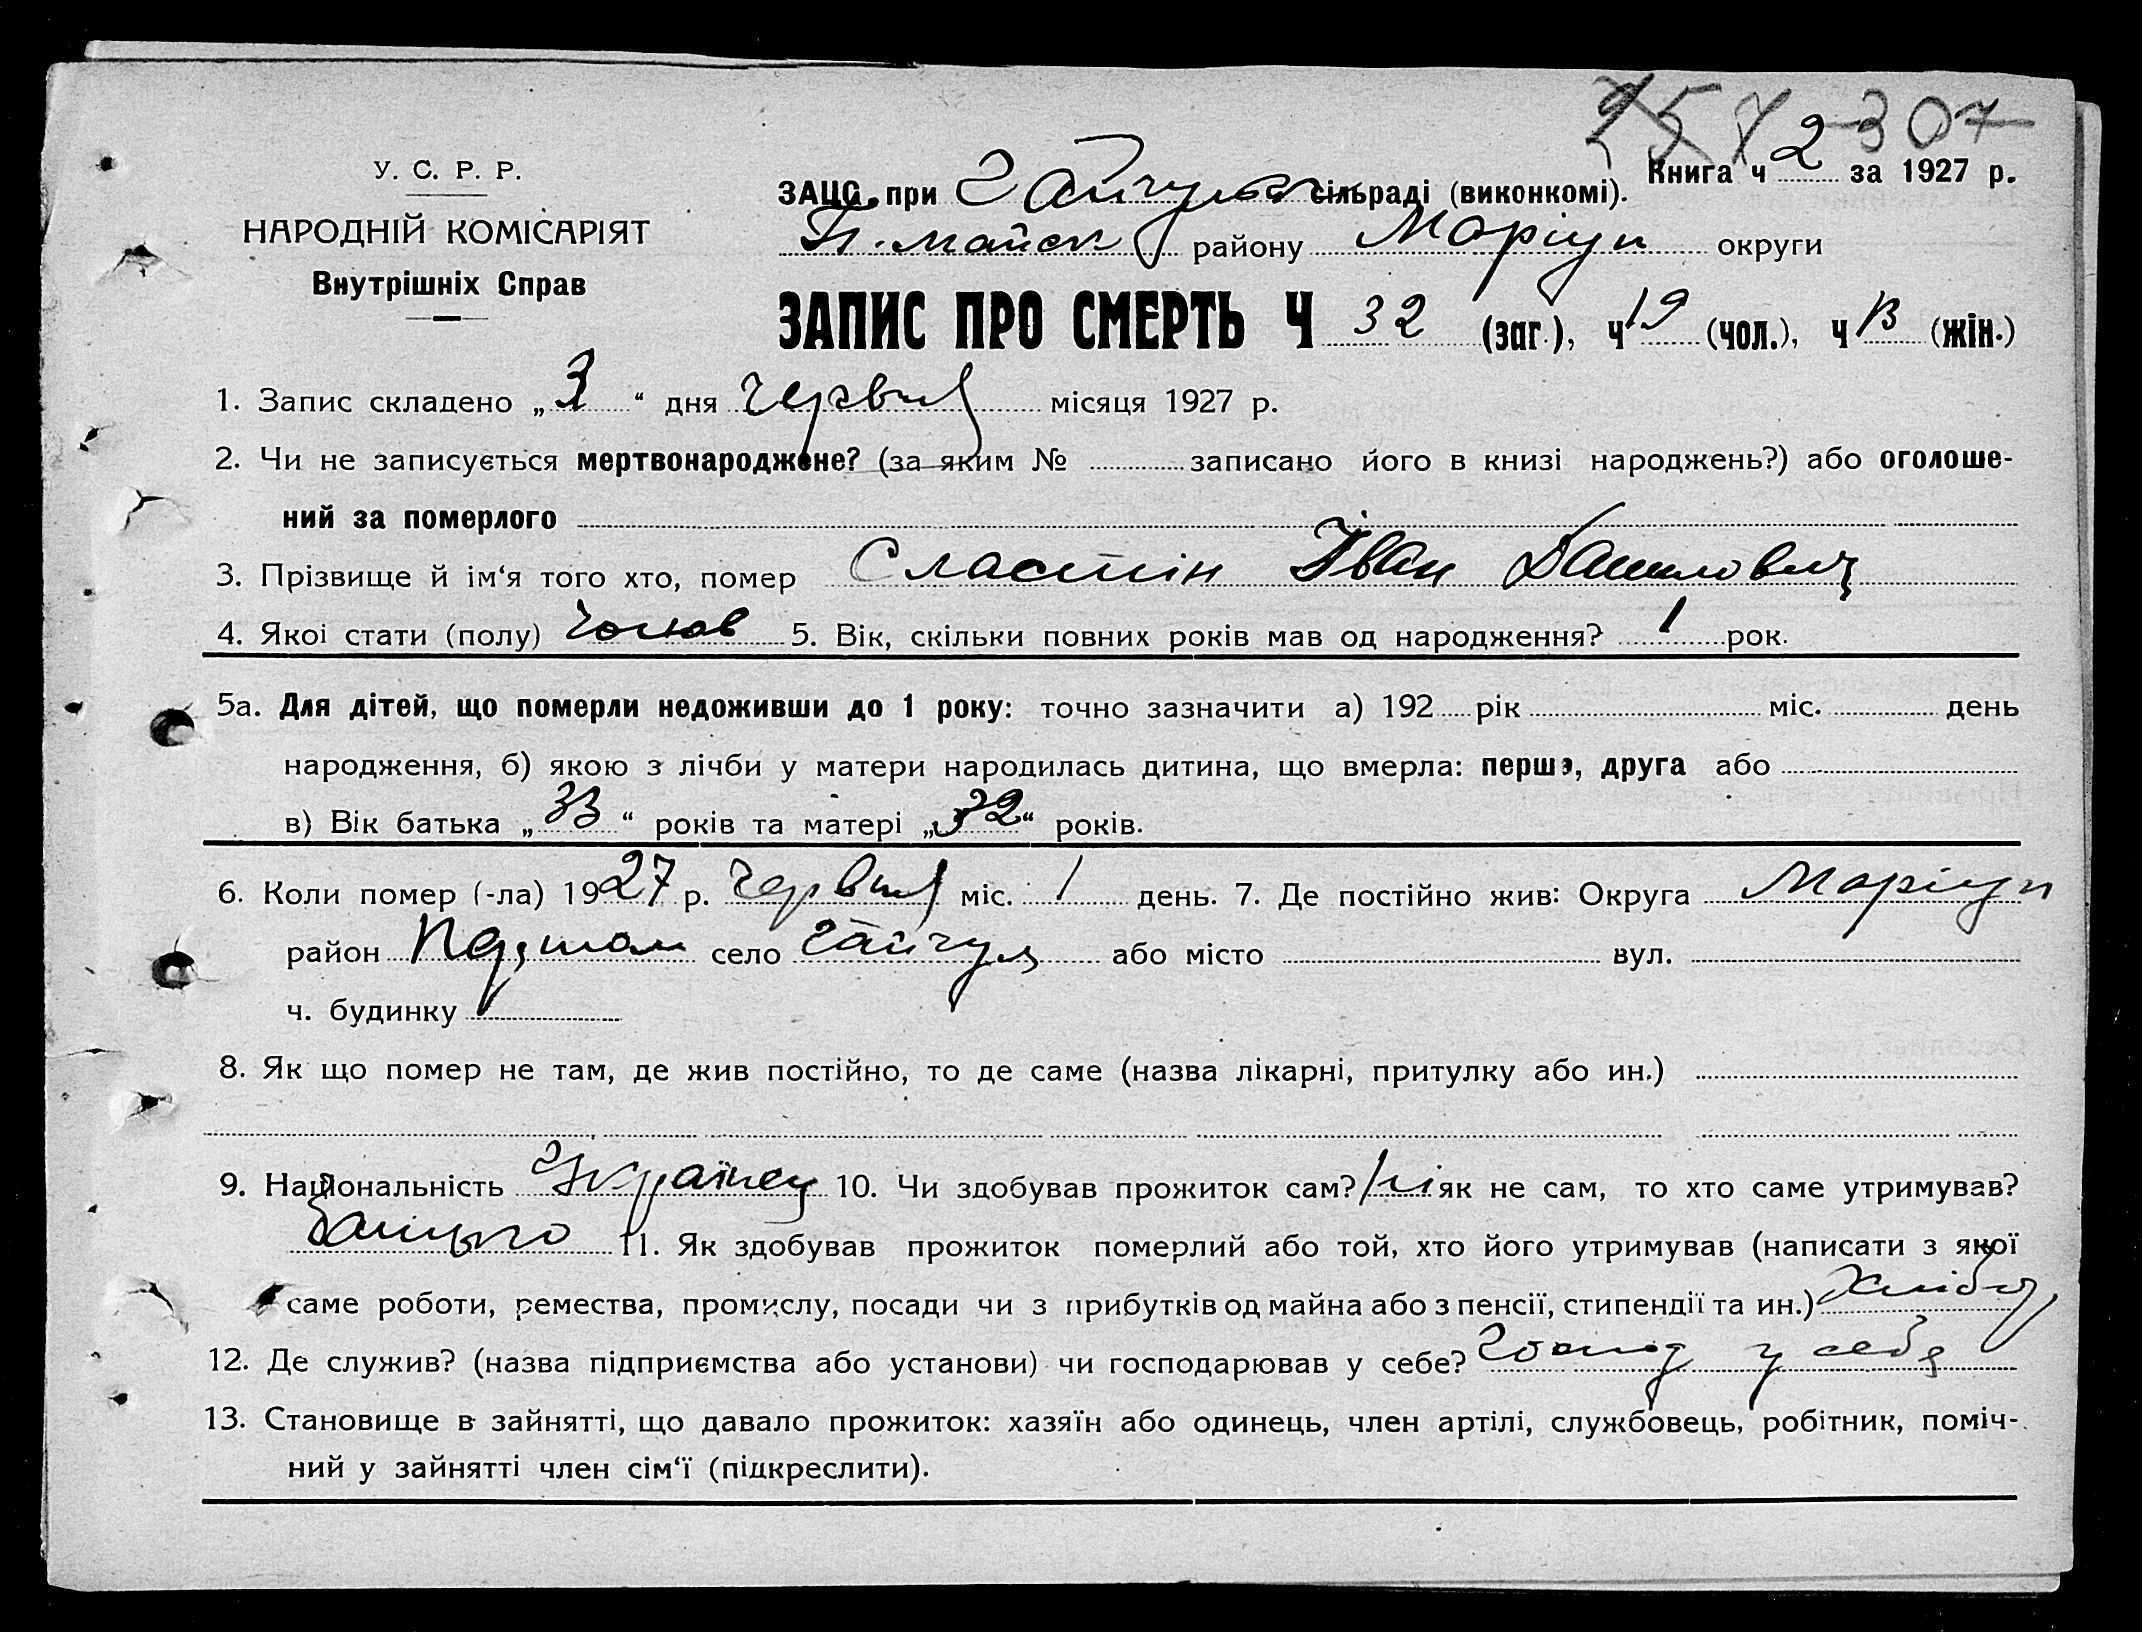 307
У. С. Р. Р.
НАРОДНІЙ КОМІСАРІЯТ
Внутрішніх Справ
Книга ч 2 за 1927 р.
ЗАЦС при Гайчул сільраді (виконкомі).
району Маріуп округи
ЗАПИС ПРО СМЕРТЬ Ч 32 (заг.), ч 19 (чол.), ч 13 (жін.)
1. Запис складено „ 3 “ дня червня місяця 1927 р.
2. Чи не записується мертвонароджене? (за яким № записано його в книзі народжень?) або оголоше-
ний за померлого
3. Прізвище й ім‘я того хто, помер Сластін Іван Данилович
4. Якоі стати (полу) чолов 5. Вік, скільки повних років мав од народження? 1 рок.
5а. Для дітей, що померли недоживши до 1 року: точно зазначити а) 192 рік міс. день
народження, б) якою з лічби у матери народилась дитина, що вмерла: перша, друга або
в) Вік батька „ 33 “ років та матері „ 32 “ років.
6. Коли помер (-ла) 1927 р. червня міс. 1 день. 7. Де постійно жив: Округа Маріуп
район село Гайчул або місто вул.
ч. будинку
8. Як що помер не там, де жив постійно, то де саме (назва лікарні, притулку або ин.)
9. Національність Українец 10. Чи здобував прожиток сам? Ні як не сам, то хто саме утримував?
Батько 11. Як здобував прожиток померлий або той, хто його утримував (написати з якої
саме роботи, ремества, промислу, посади чи з прибутків од майна або з пенсії, стипендії та ин.) Хлібор
12. Де служив? (назва підприємства або установи) чи господарював у себе? Господ у себе
13. Становище в зайнятті, що давало прожиток: хазяїн або одинець, член артілі, службовець, робітник, поміч-
ний у зайнятті член сім‘ї (підкреслити).